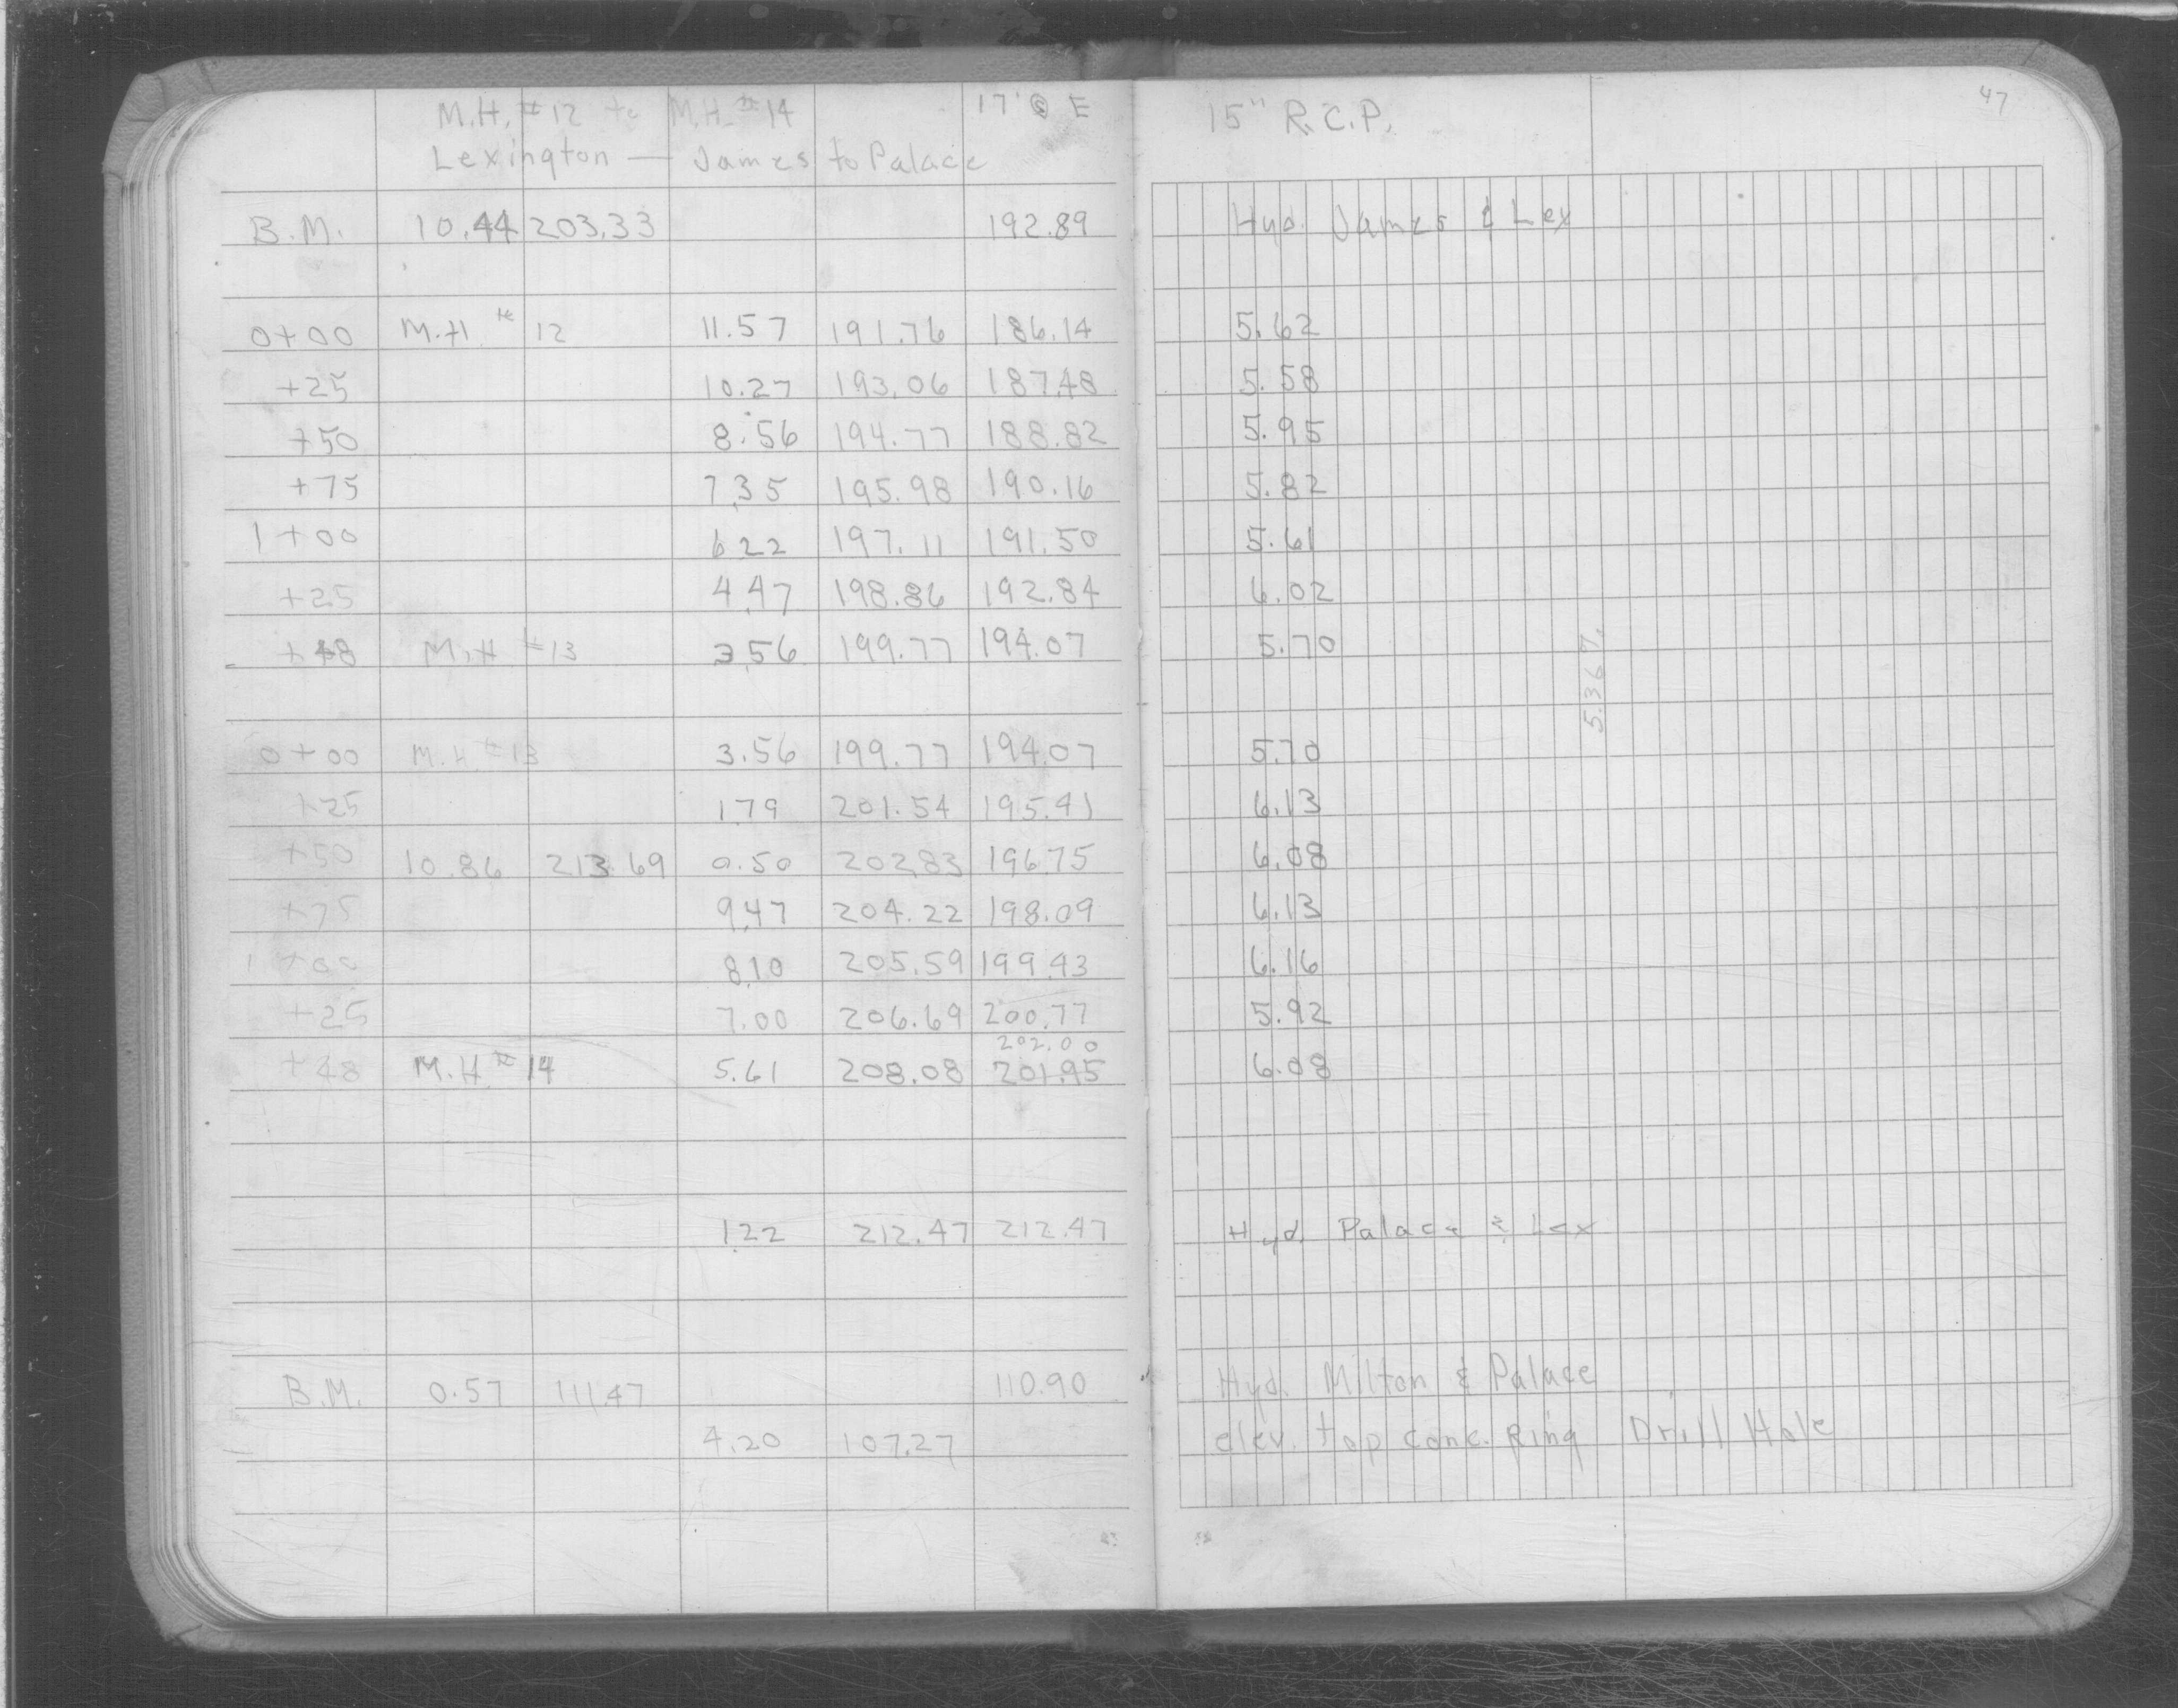 M.H. #12 to M.H. #14 17' E 15" R.C.P. 47
Lexington — James to Palace
B.M. 10.44 203.33 192.89 Hyd. James & Lex
0+00 M.H. # 12 11.57 191.76 186.14 5.62
+25 10.27 193.06 187.48 5.58
+50 8.56 194.77 188.82 5.95
+75 7.35 195.98 190.16 5.82
1+00 6.22 197.11 191.50 5.61
+25 4.47 198.86 192.84 6.02
+48 M.H #13 3.56 199.77 194.07 5.70
5.367.
0+00 M.H. #13 3.56 199.77 194.07 5.70
+25 1.79 201.54 195.41 6.13
+50 10.86 213.69 0.50 202.83 196.75 6.08
+75 9.47 204.22 198.09 6.13
1+00 8.10 205.59 199.43 6.16
+25 7.00 206.69 200.77 5.92
202.00
+48 M.H. # 14 5.61 208.08 201.95 6.08
1.22 212.47 212.47 Hyd. Palace & Lex
B.M. 0.57 111.47 110.90 Hyd. Milton & Palace
4.20 107.27 elev. top conc. Ring Drill Hole